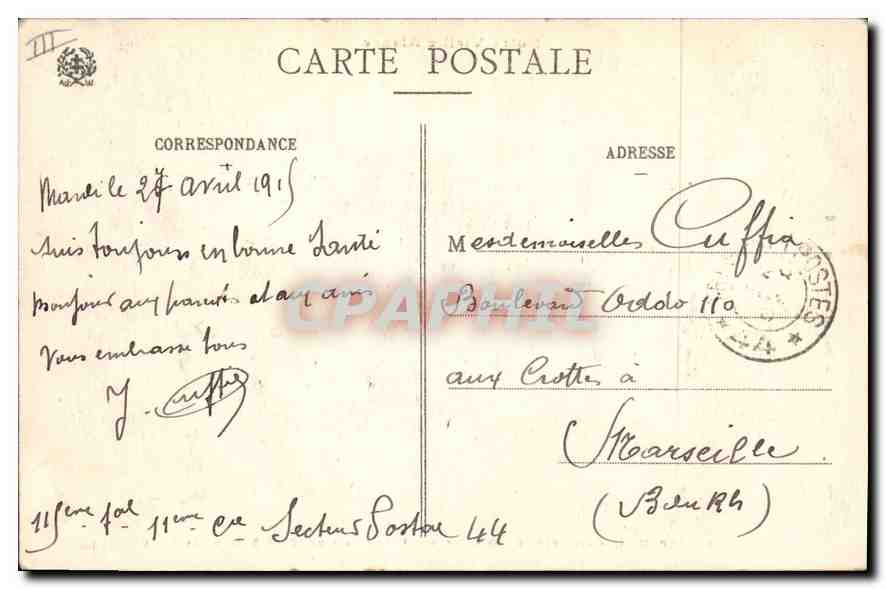 III
CARTE POSTALE
CORRESPONDANCE
Mardi le 27 avril 1915
Suis toujours en bonne Santé
bonjour aux parents et aux amis
Vous embrasse tous
J. Cuffia
115eme 11eme Cie Secteur Postal 44
ADRESSE
Mesdemoiselles Cuffia
Boulevard Oddo 110
aux Crottes à
Marseille
(B du Rh)
POSTES
* 44 *
CPAPHIL